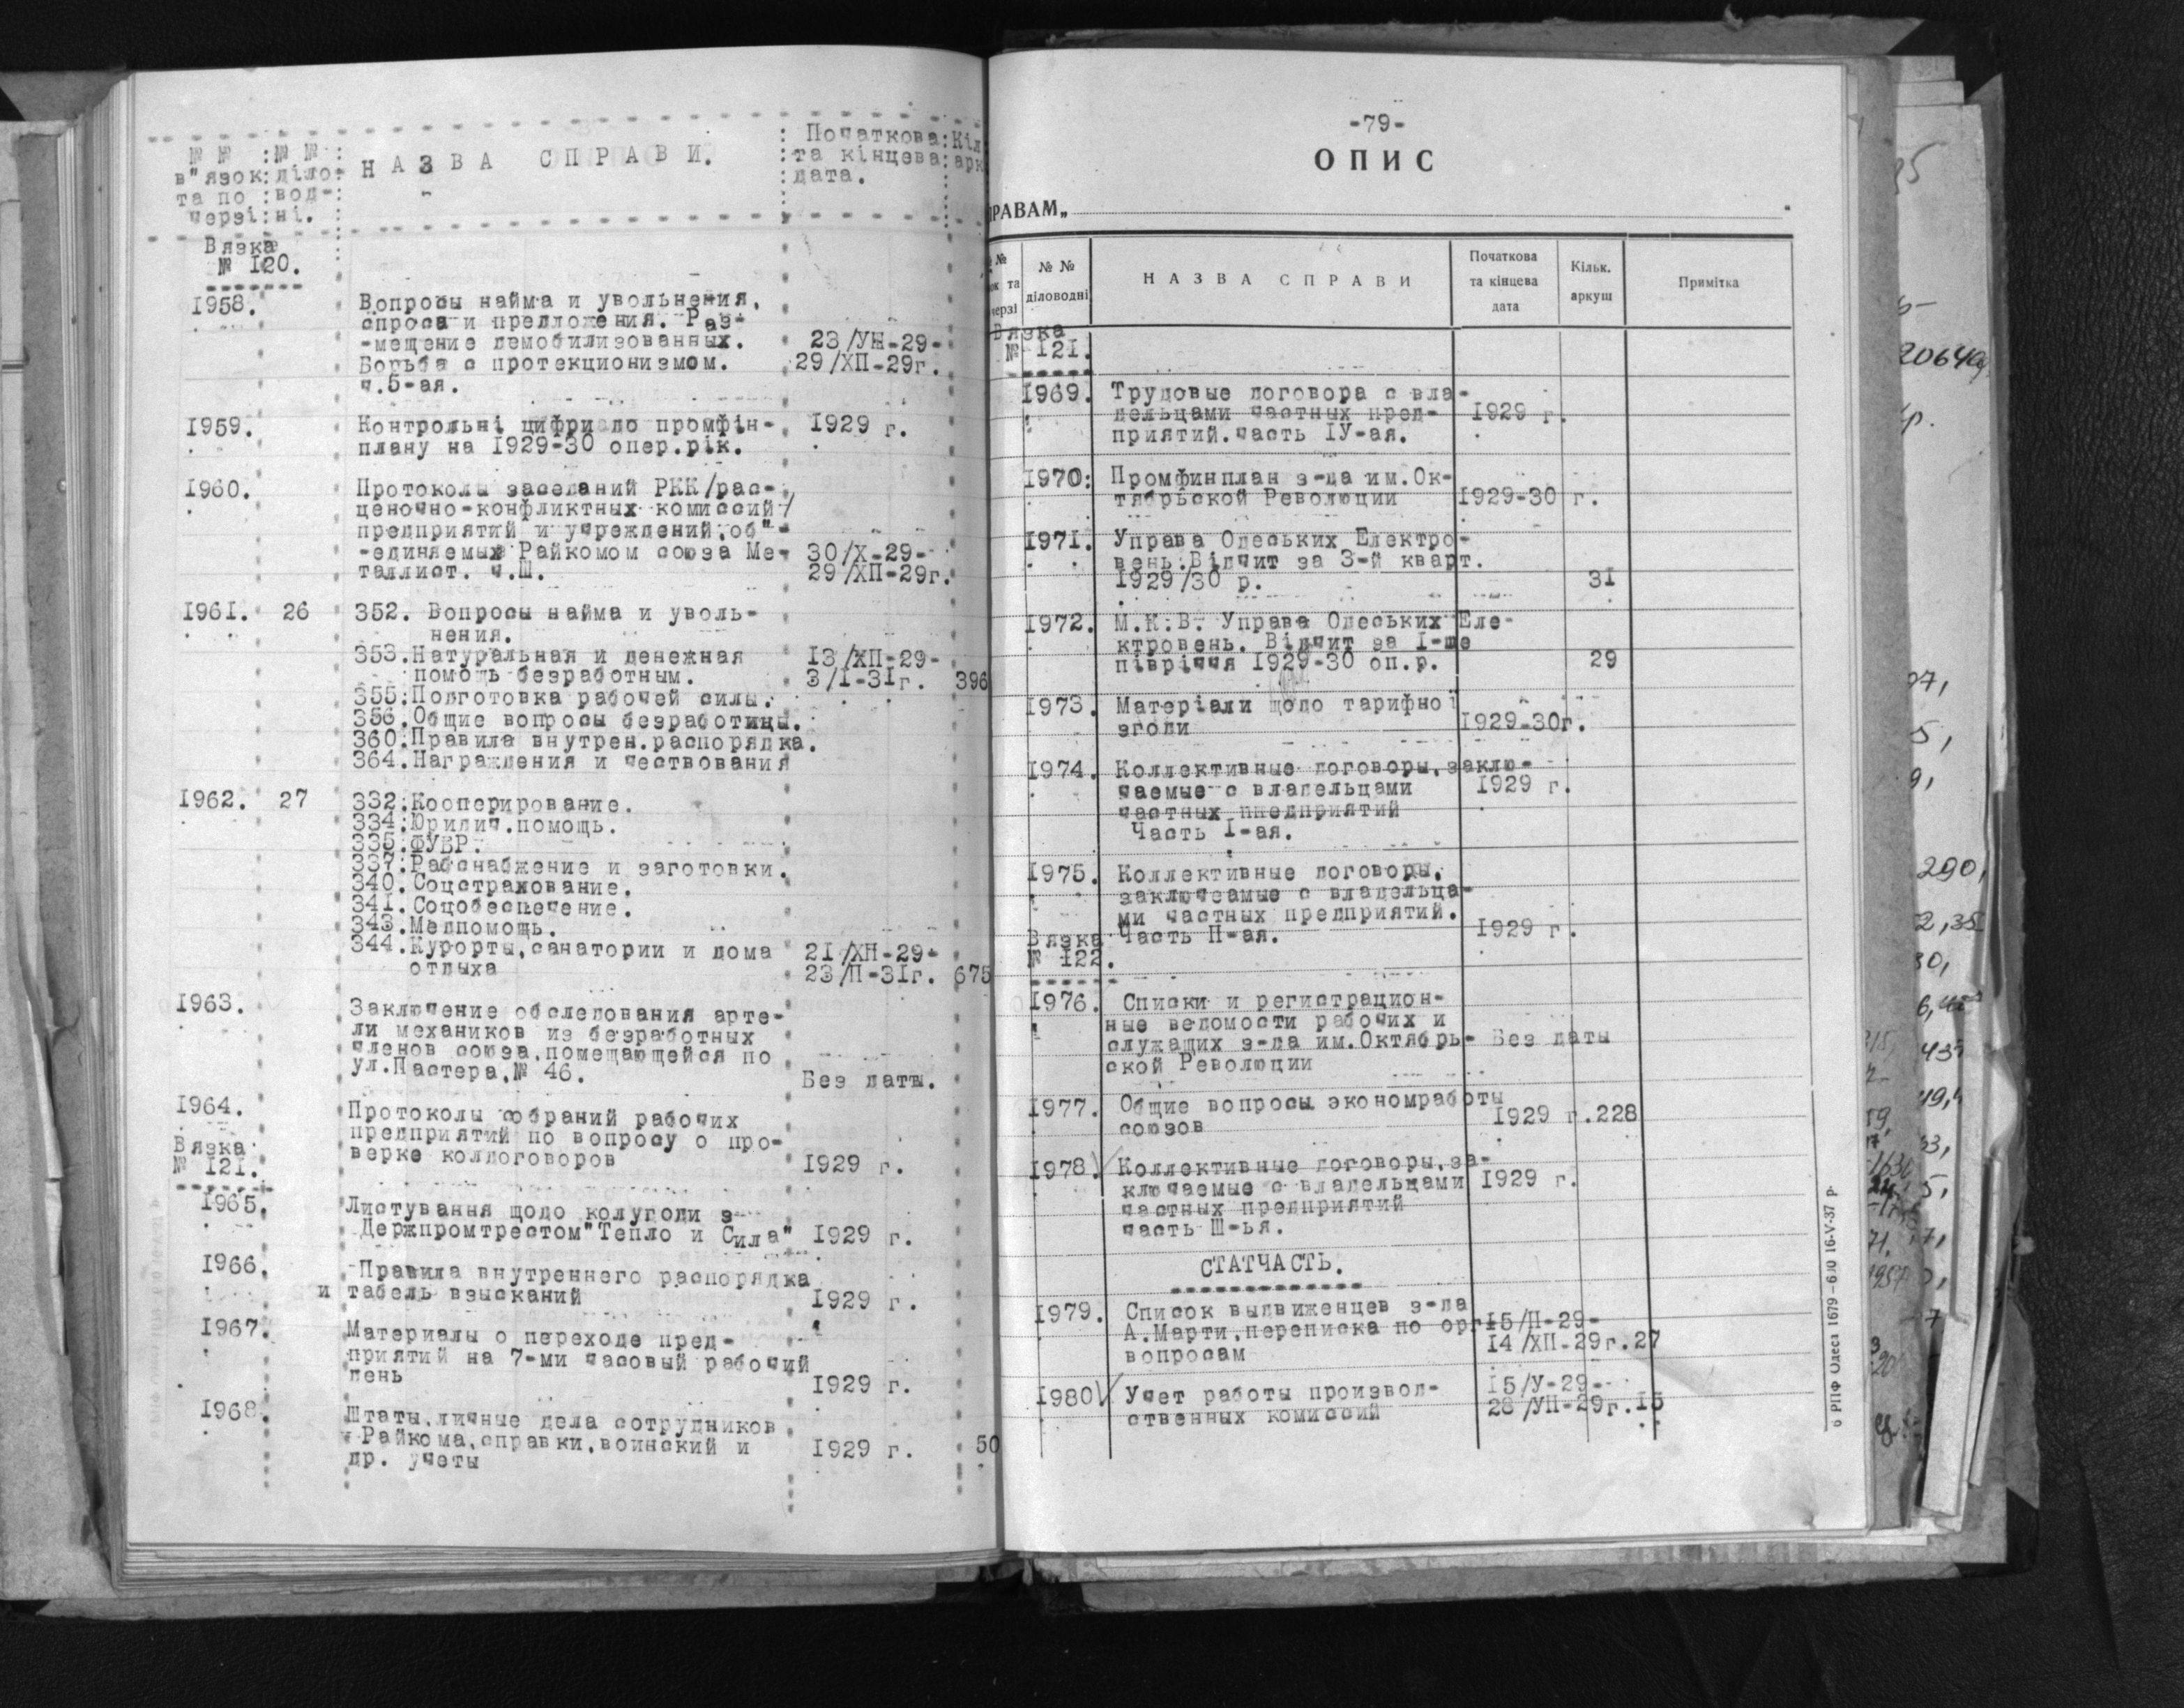 № № :№ №:
в"язок:діло-:
та по :вод-:
черзі:ні. :
НАЗВА СПРАВИ.
: Початкова:Кіл
:та кінцева:арк
:дата.
Вязка
№ 120.
1958. Вопросы найма и увольнения,
спроса и предложения. Раз-
-мещение демобилизованных. 23/УН-29-
Борьба с протекционизмом. 29/ХП-29г.
ч.5-ая.
1959. Контрольні цифри до промфін- 1929 г.
плану на 1929-30 опер.рік.
1960. Протоколы заседаний РКК/рас-
ценочно-конфликтных комиссий/
предприятий и учреждений, об"-
-единяемых Райкомом союза Ме- 30/Х-29-
таллист. ч.Ш. 29/ХП-29г.
1961. 26 352. Вопросы найма и уволь-
нения.
353.Натуральная и денежная 13/ХП-29-
помощь безработным. 3/1-31г. 396
355.Подготовка рабочей силы.
356.Общие вопросы безработицы.
360.Правила внутрен.распорядка.
364.Награждения и чествования
1962. 27 332.Кооперирование.
334.Юридич.помощь.
335.ФУБР.
337.Рабснабжение и заготовки.
340.Соцстрахование.
341.Соцобеспечение.
343.Медпомощь.
344.Курорты,санатории и дома 21/ХН-29-
отдыха 23/П-31г. 675
1963. Заключение обследования арте-
ли механиков из безработных
членов союза,помещающейся по
ул.Пастера,№ 46. Без даты.
1964. Протоколы собраний рабочих
предприятий по вопросу о про-
верке колдоговоров 1929 г.
Вязка
№ 121.
1965. Листування щодо колугоди з
Держпромтрестом"Тепло и Сила" 1929 г.
1966. -Правила внутреннего распорядка
и табель взысканий 1929 г.
1967. Материалы о переходе пред-
приятий на 7-ми часовый рабочий
день 1929 г.
1968. Штаты,личные дела сотрудников
Райкома,справки,воинский и 1929 г. 50
др. учеты
-79-
ОПИС
РАВАМ„
№ №
ок та
черзі
№ №
діловодні
НАЗВА СПРАВИ
Початкова
та кінцева
дата
Кільк.
аркуш
Примітка
Вязка
№ 121.
1969. Трудовые договора с вла-
дельцами частных пред- 1929 г.
приятий.часть IУ-ая.
1970: Промфинплан з-да им.Ок-
тябрьской Революции 1929-30 г.
1971. Управа Одеських Електро-
вень.Відчит за 3-й кварт.
1929/30 р. 31
1972. М.К.В. Управа Одеських Еле-
ктровень. Відчит за I-ше
півріччя 1929-30 оп.р. 29
1973. Матеріали щодо тарифної
згоди 1929-30г.
1974. Коллективные договоры,заклю-
чаемые с владельцами 1929 г.
частных пжедприятий
Часть I-ая.
1975. Коллективные договоры,
заключеамые с владельца-
ми частных предприятий.
Часть П-ая. 1929 г.
Вязка
№ 122.
1976. Списки и регистрацион-
ные ведомости рабочих и
служащих з-да им.Октябрь- Без даты
ской Революции
1977. Общие вопросы экономработы
союзов 1929 г.228
1978. Коллективные договоры,за-
ключаемые с владельцами 1929 г.
частных предприятий
часть Ш-ья.
СТАТЧАСТЬ.
1979. Список выдвиженцев з-да
А.Марти,переписка по орг- 15/П-29-
вопросам 14/ХП-29г.27
1980 Учет работы производ- 15/У-29-
ственных комиссий 28/УП-29г.15
6 РПФ Одеса 1679—600 16-V-37 р.
290,